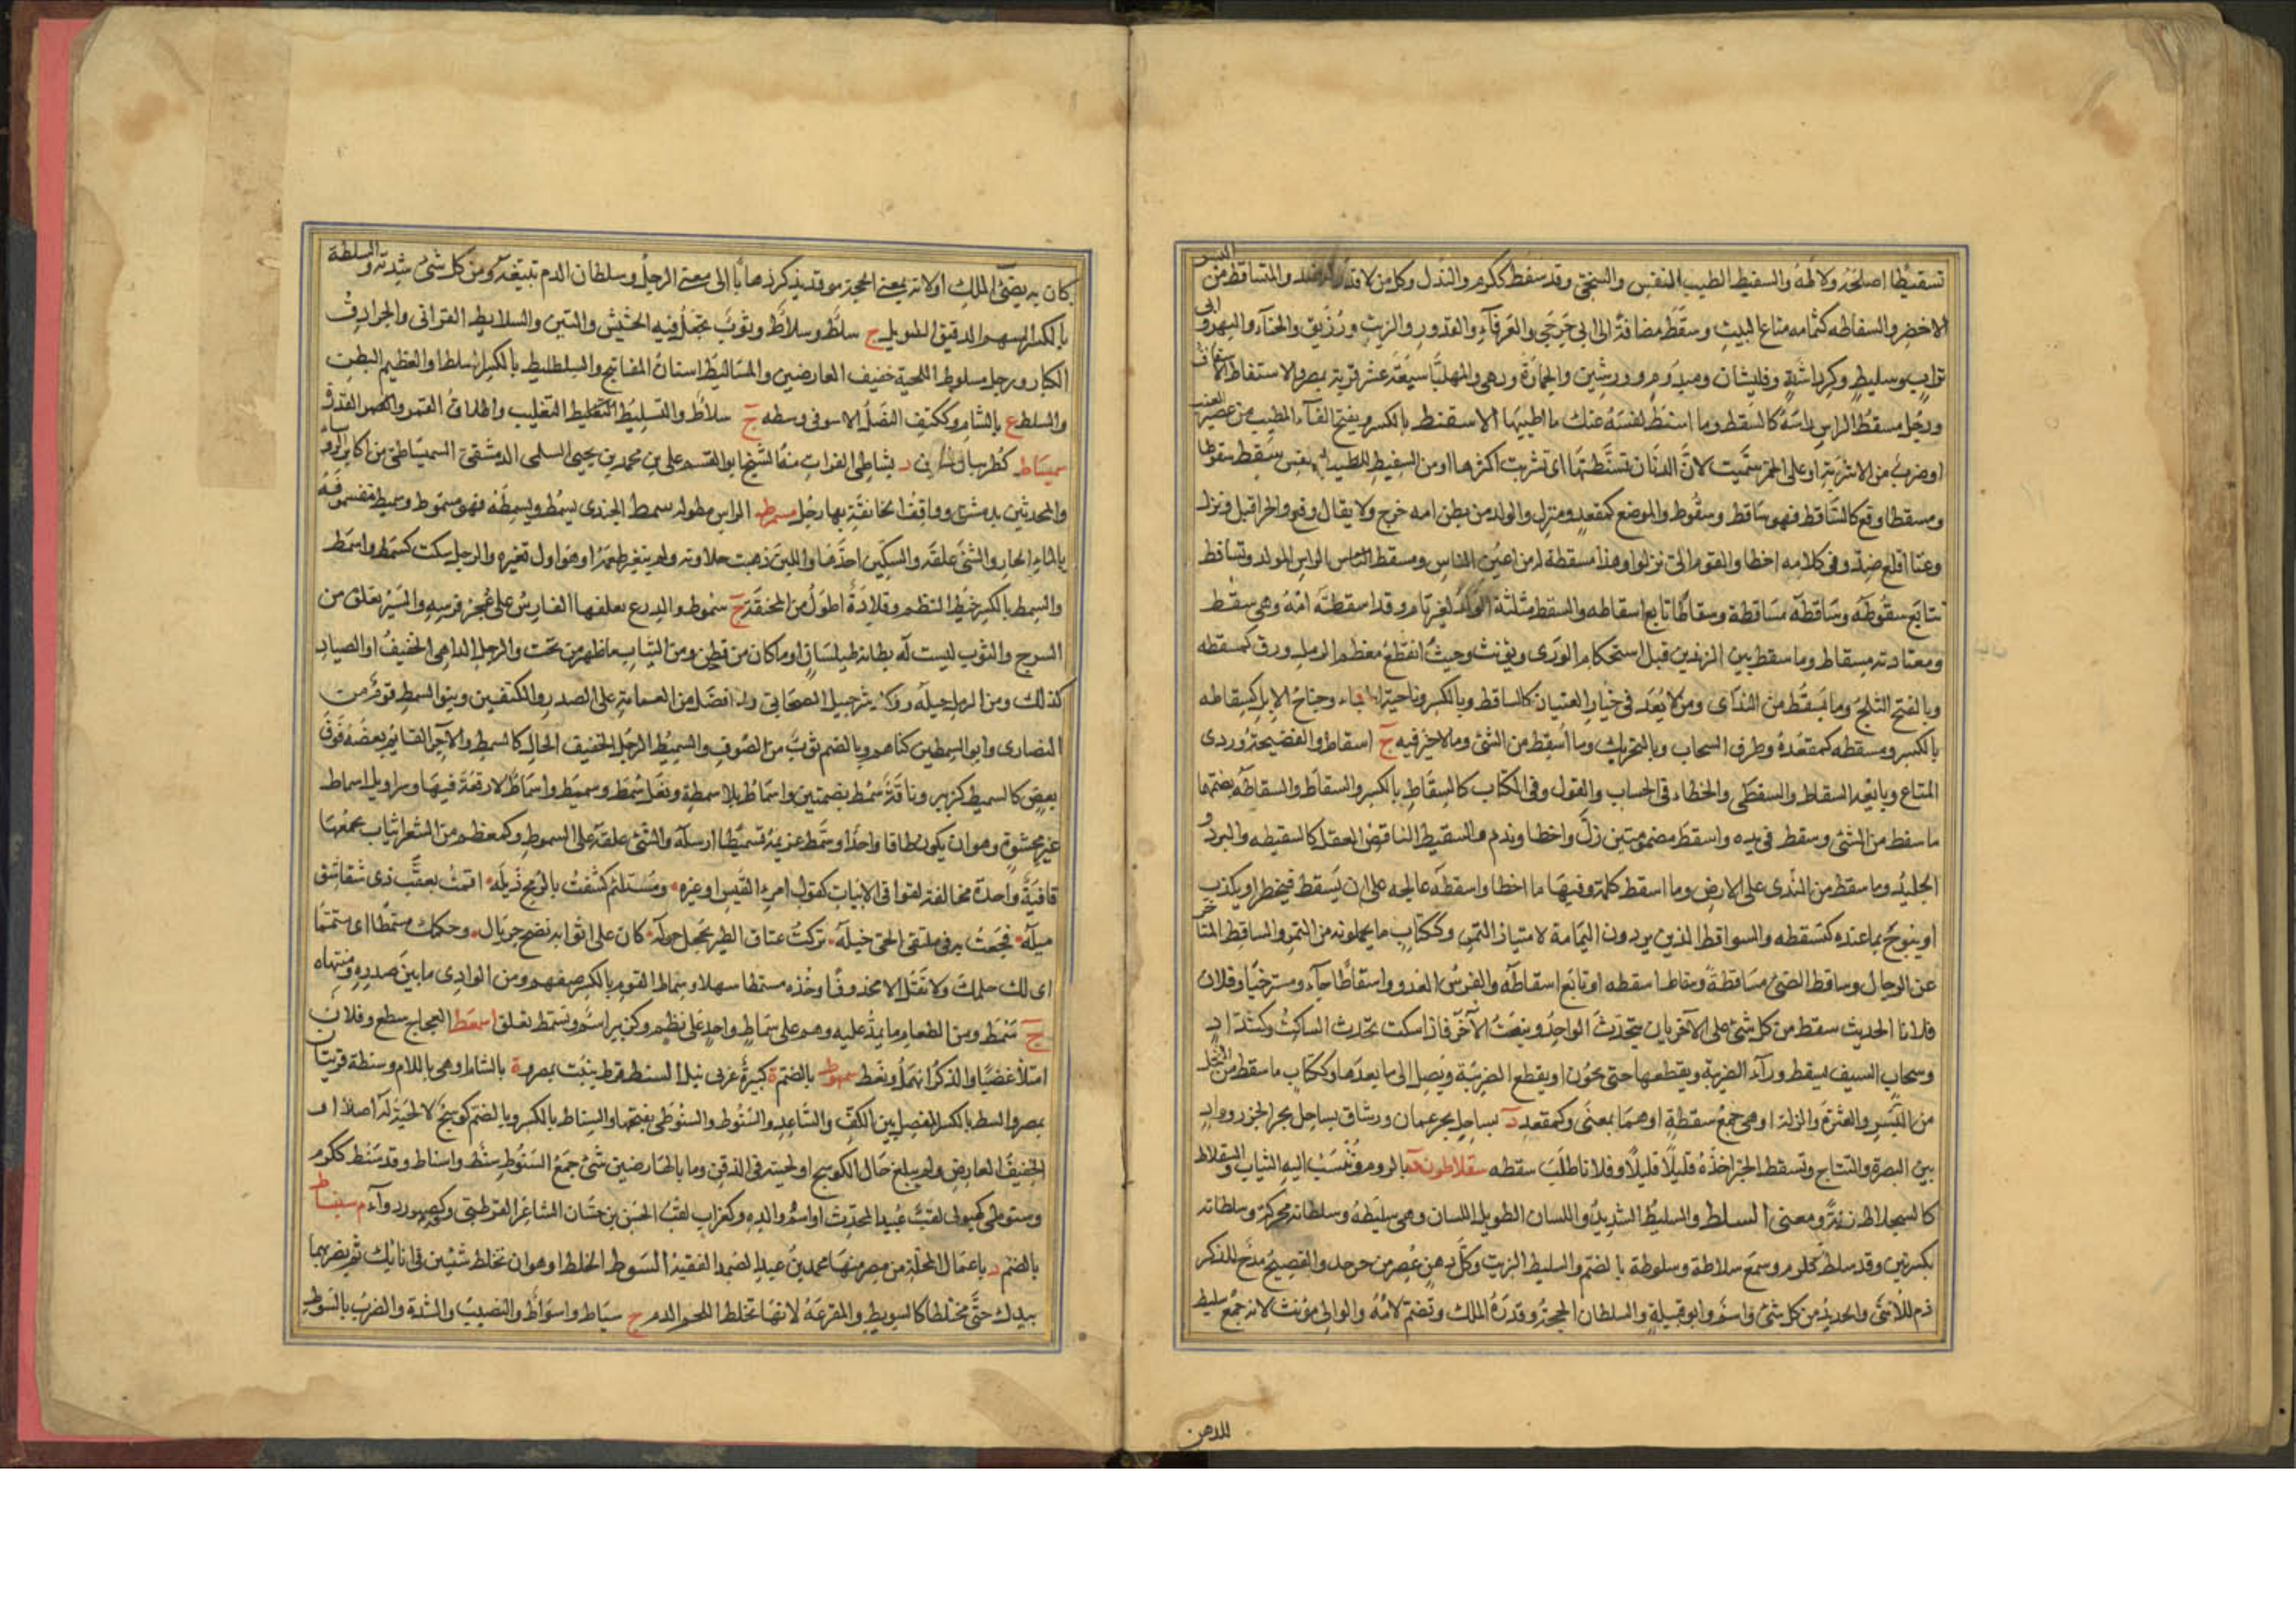 تسقيطا اصلحه ولاطه والسفيط الطيب النفس والسخي وقد سفط ككرم والنذل وكل من لا قدر له ضد والمتساقط من البسر
الاخضر والسفاطه كثمامه متاع البيت وسقط مضافة الى ابي جرجى والعرفاء والقدور والزيت ورزيق والحناء والبهرو ابي
تراب وسليط وكرداشة وقليشان وميدوم ورشين والخمارة ونهى والمهلبا سبعة عشر قرية بمصر والاستفاط الاستفاف
ورجل مسقط الراس راسه كالسقط وما اسفط نفسه عنك ما اطيبها الاسفنط بالكسر ويفتح الفاء المطيب من عصير العنب
او ضرب من الاشربة او على الخمر سميت لان الدنان تسفطتها اى تشربت اكثرها او من السفيط للطيب النفس سقط سقوطا
ومسقطا وقع كالساقط فهو ساقط وسقوط والموضع كمقعد ومنزل والولد من بطن امه خرج ولا يقال وقع والحر اقبل ونزل
وعنا اقلع ضد وفى كلامه اخطا والقوم الى نزلوا وهذا مسقطة له من اعين الناس ومسقط الناس الراس المولد وتساقط
تتابع سقوطه وساقطه مساقطة وسقاطا تابع اسقاطه والسقط مثلثة الولد لغير تمام وقد اسقطته امه وهى مسقط
ومعتادته مسقاط وما سقط بين الزندين قبل استحكام الورى ويؤنث وحيث انقطع معظم الرمل ورق كمسقطه
وبالفتح الثلج وما يسقط من الندى ومن لا يعد فى خيار الفتيان كالساقط وبالكسر ناحية الخباء وجناح الطاير كسقاطه
بالكسر ومسقطه كمقعده وطرف السحاب وبالتحريك وما اسقط من الشئ وما لا خير فيه ج اسقاط والفضيحة وردى
المتاع وبايعه السقاط والسقطى والخطاء فى الحساب والقول وفى الكتاب كالسقاط بالكسر والسقاط والسقاطه بضمتهما
ما سقط من الشئ وسقط فى يده واسقط مضمومتين زل واخطا وندم والسقيط الناقص العقل كالسقيطه والبرد و
الجليد وما سقط من الندى على الارض وما اسقط كلمة وفيها ما اخطا واسقطه عالجه على ان يسقط فيخطر او يكذب
او يبوح بما عنده كتسقطه والسواقط الذين يردون اليمامة لامتياز التمر وككتاب ما يحملونه من التمر والساقط المتاخر
عن الرجال وساقط الشئ مساقطة وسقاطا اسقطه او تابع اسقاطه والفرس العدو واسقاطا جاء مسترخيا وفلان
فلانا الحديث سقط من كل شئ على الآخر بان يتحدث الواحد وينصت الآخر فاذا سكت تحدث الساكت وكشداد
وسحاب السيف يسقط ورآء الضريبة ويقطعها حتى يجوز او يقطع الضريبة ويصل الى ما بعدها وككتاب ما سقط من النخل
من البسر والعثرة والزلة او هى جمع سقطة او هما بمعنى وكمقعد د بساحل بحر عمان ورستاق بساحل بحر الخزر وواد
بين البصرة والنباج وتسقط الخبر اخذه قليلا قليلا وفلانا طلب سقطه سقلاطون د بالروم وتنسب اليه الثياب والسقلاط
كالسجلاط زنة ومعنى السلط والسليط الشديد واللسان الطويل واللسان وهى سليطة وسلطانة محركة وسلطانه
بكسرتين وقد سلط ككرم وسمع سلاطة وسلوطة بالضم والسليط الزيت وكل دهن عصر من حب والفصيح مدح للذكر
ذم للانثى والحديد من كل شئ واسم وابو قبيلة والسلطان الحجة وقدرة الملك وتضم لامه والوالى مؤنث لانه جمع سليط
للدهن
كان به يضئ الملك اولانه بمعنى الحجة وقد يذكر ذهابا الى معنى الرجل وسلطان الدم تبيغه ومن كل شئ شدته والسلطة
بالكسر السهم الدقيق الطويل ج سلط وسلاط وثوب يجعل فيه الحشيش والتبن والسلايط الفرانى والجرادق
الكبار ورجل مسلوط اللحية خفيف العارضين والمساليط اسنان المفاتيح والسلطليط بالكسر المسلط او العظيم البطن
والسلط ع بالشام وككتف النصل لا نتو فى وسطه ج سلاط والتسليط التغليب واطلاق القهر والقدرة
سميساط كطربال د بشاطى الفرات منه الشيخ ابو القسم على بن محمد بن يحيى السلمى الدمشقى السميساطى من اكابر الروسا
والمحدثين بدمشق وواقف الخانقاه بها رجل مسمرط الراس مطوله سمط الجدى يسمط ويسمطه فهو مسموط وسميط نتف صوفه
بالماء الحار والشئ علقه والسكين احدها واللبن ذهبت حلاوته ولم يتغير طعمه او هو اول تغيره والرجل سكت كسمط واسمط
والسمط بالكسر خيط النظم وقلادة اطول من المخنقة ج سموط والدرع يعلقها الفارس على عجز فرسه والسير يعلق من
السرج والثوب ليست له بطانة طيلسان او ما كان من قطن ومن الثياب ما ظهر من تحت والرجل الداهى الخفيف او الصياد
كذلك ومن الرمل حبله ووالد شرحبيل الصحابى وما افضل من العمامة على الصدر والكتفين وبنو السمط قوم من
النصارى وابو السمط من كناهم وبالضم ثوب من الصوف والسميط الرجل الخفيف الحال كالسمط والآجر القايم بعضه فوق
بعض كالسميط كزبير وناقة سمط بضمتين واسماط بلا سمة ونعل سمط وسميط واسماط لا رقعة فيها وسراويل اسماط
غير محشوة وهو ان يكون طاقا واحدا وسمط غريمه تسميطا ارسله والشئ علقه على السموط وكمعظم من الشعر ابيات تجمعها
قافية واحدة مخالفة لقوافى الابيات كقول امرئ القيس او غيره ومستلئم كشفت بالرمح ذيله اقمت بعضب ذى شقاشق
ميله فجعت به فى ملتقى الحى خيله تركت عتاق الطير تحجل حوله كان على اثوابه نضح جريال وحكمك مسمطا اى متمما
اى لك حكمك ولا تقل الا محذوفا وخذه مسمطا سهلا وسماط القوم بالكسر صفهم ومن الوادى ما بين صدره ومنتهاه
ج سمط ومن الطعام ما يمد عليه وهم على سماط واحد على نظم وكزبير اسم وتسمط تعلق اسمعط العجاج سطع وفلان
امتلأ غضبا والذكر اتمهل ونعظ سمهوط بالضم ة كبيرة غربى نيل السنط قرظ ينبت بمصر وة بالشام او هى باللام وسنطة قريتان
بمصر والسنط بالكسر المفصل بين الكف والساعد والسنوط والسنوطى بفتحهما والسناط بالكسر وبالضم كوسج لا لحية له اصلا او
الخفيف العارض ولم يبلغ حال الكوسج او لحيته فى الذقن وما بالعارضين شئ جمع السنوط سنط واسناط وقد سنط ككرم
وسنوطى كهيولى لقب عبيد المحدث او اسم والده وكغراب لقب الحسن بن حسان الشاعر القرطبى وكصبور دوآء م سنباط
بالضم د باعمال المحلة من مصر منها محمد بن عبد الصمد الفقيه السوط الخلط او هو ان تخلط شيئين فى انائك ثم تضربهما
بيدك حتى يختلطا كالتسويط والمقرعة لانها تخلط اللحم بالدم ج سياط واسواط والنصيب والشدة والضرب بالسوط